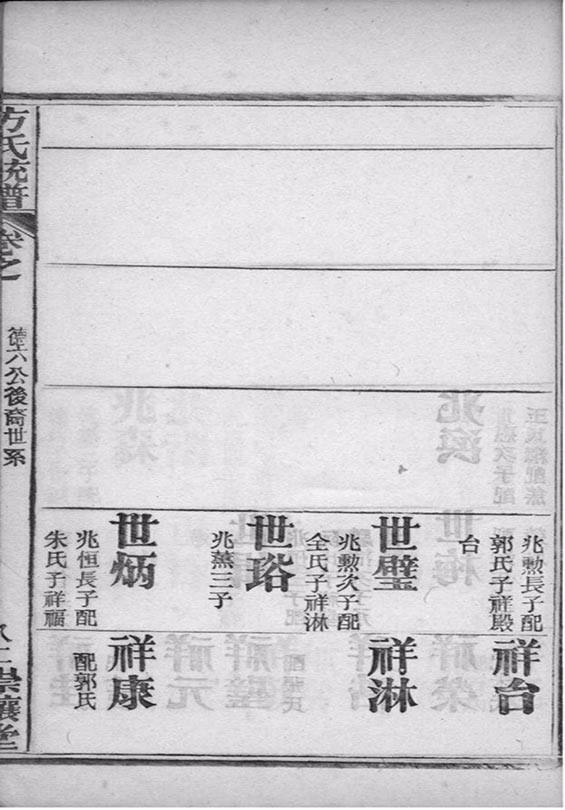 兆勲長子配
郭氏子祥殿
台
祥台
世璧
兆勲次子配
全氏子祥淋
祥淋
世珞
兆薰三子
世炳
兆恒長子配
朱氏子祥福
祥康
配郭氏
方氏統譜
卷之
德六公後裔世系
崇讓堂